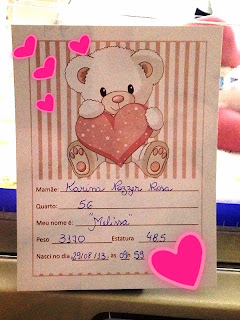 Mamãe: Karina Pozzyr Rosa
Quarto: 56
Meu nome é: "Melissa"
Peso 3170 Estatura 48.5
Nasci no dia 29/08/13 as 09h 59